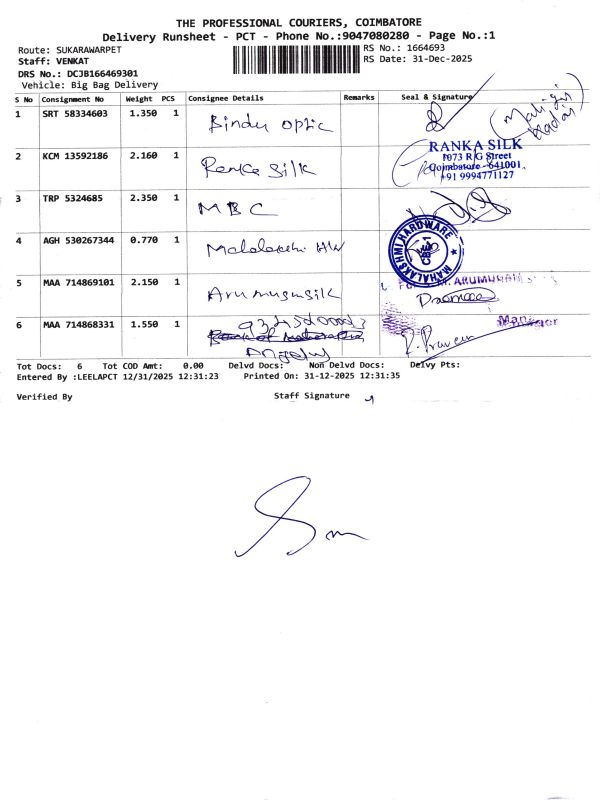 THE PROFESSIONAL COURIERS, COIMBATORE
Delivery Runsheet - PCT - Phone No.:9047080280 - Page No.:1
Route: SUKARAWARPET
RS No.: 1664693
Staff: VENKAT
RS Date: 31-Dec-2025
DRS No.: DCJB166469301
Vehicle: Big Bag Delivery
S No Consignment No Weight PCS Consignee Details Remarks Seal & Signature
1 SRT 58334603 1.350 1 Bindu optic
2 KCM 13592186 2.160 1 Ranka Silk
RANKA SILK
1073 R G Street
Coimbatore - 641001.
+91 9994771127
3 TRP 5324685 2.350 1 MBC
4 AGH 530267344 0.770 1 Mahalakshmi HW
MAHALAKSHMI HARDWARE
CBE-1
5 MAA 714869101 2.150 1 Arumugumsilk
M. ARUMUGAM
6 MAA 714868331 1.550 1
Manager
P. Praveen
Tot Docs: 6 Tot COD Amt: 0.00 Delvd Docs: Non Delvd Docs: Delvy Pts:
Entered By :LEELAPCT 12/31/2025 12:31:23 Printed On: 31-12-2025 12:31:35
Verified By Staff Signature